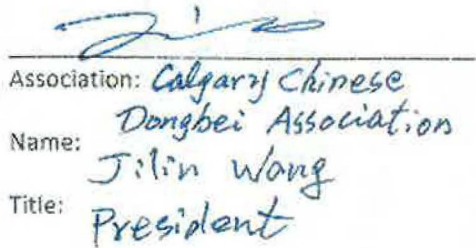 Association: Calgary Chinese
Dongbei Association
Name:
Jilin Wang
Title:
President